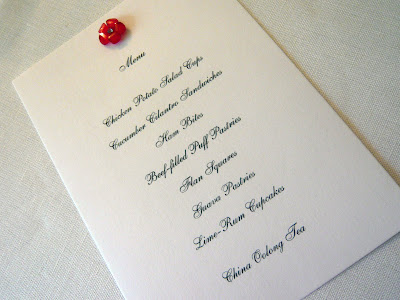 Menu
Chicken Potato Salad Cups
Cucumber Cilantro Sandwiches
Ham Bites
Beef-filled Puff Pastries
Flan Squares
Guava Pastries
Lime-Rum Cupcakes
China Oolong Tea